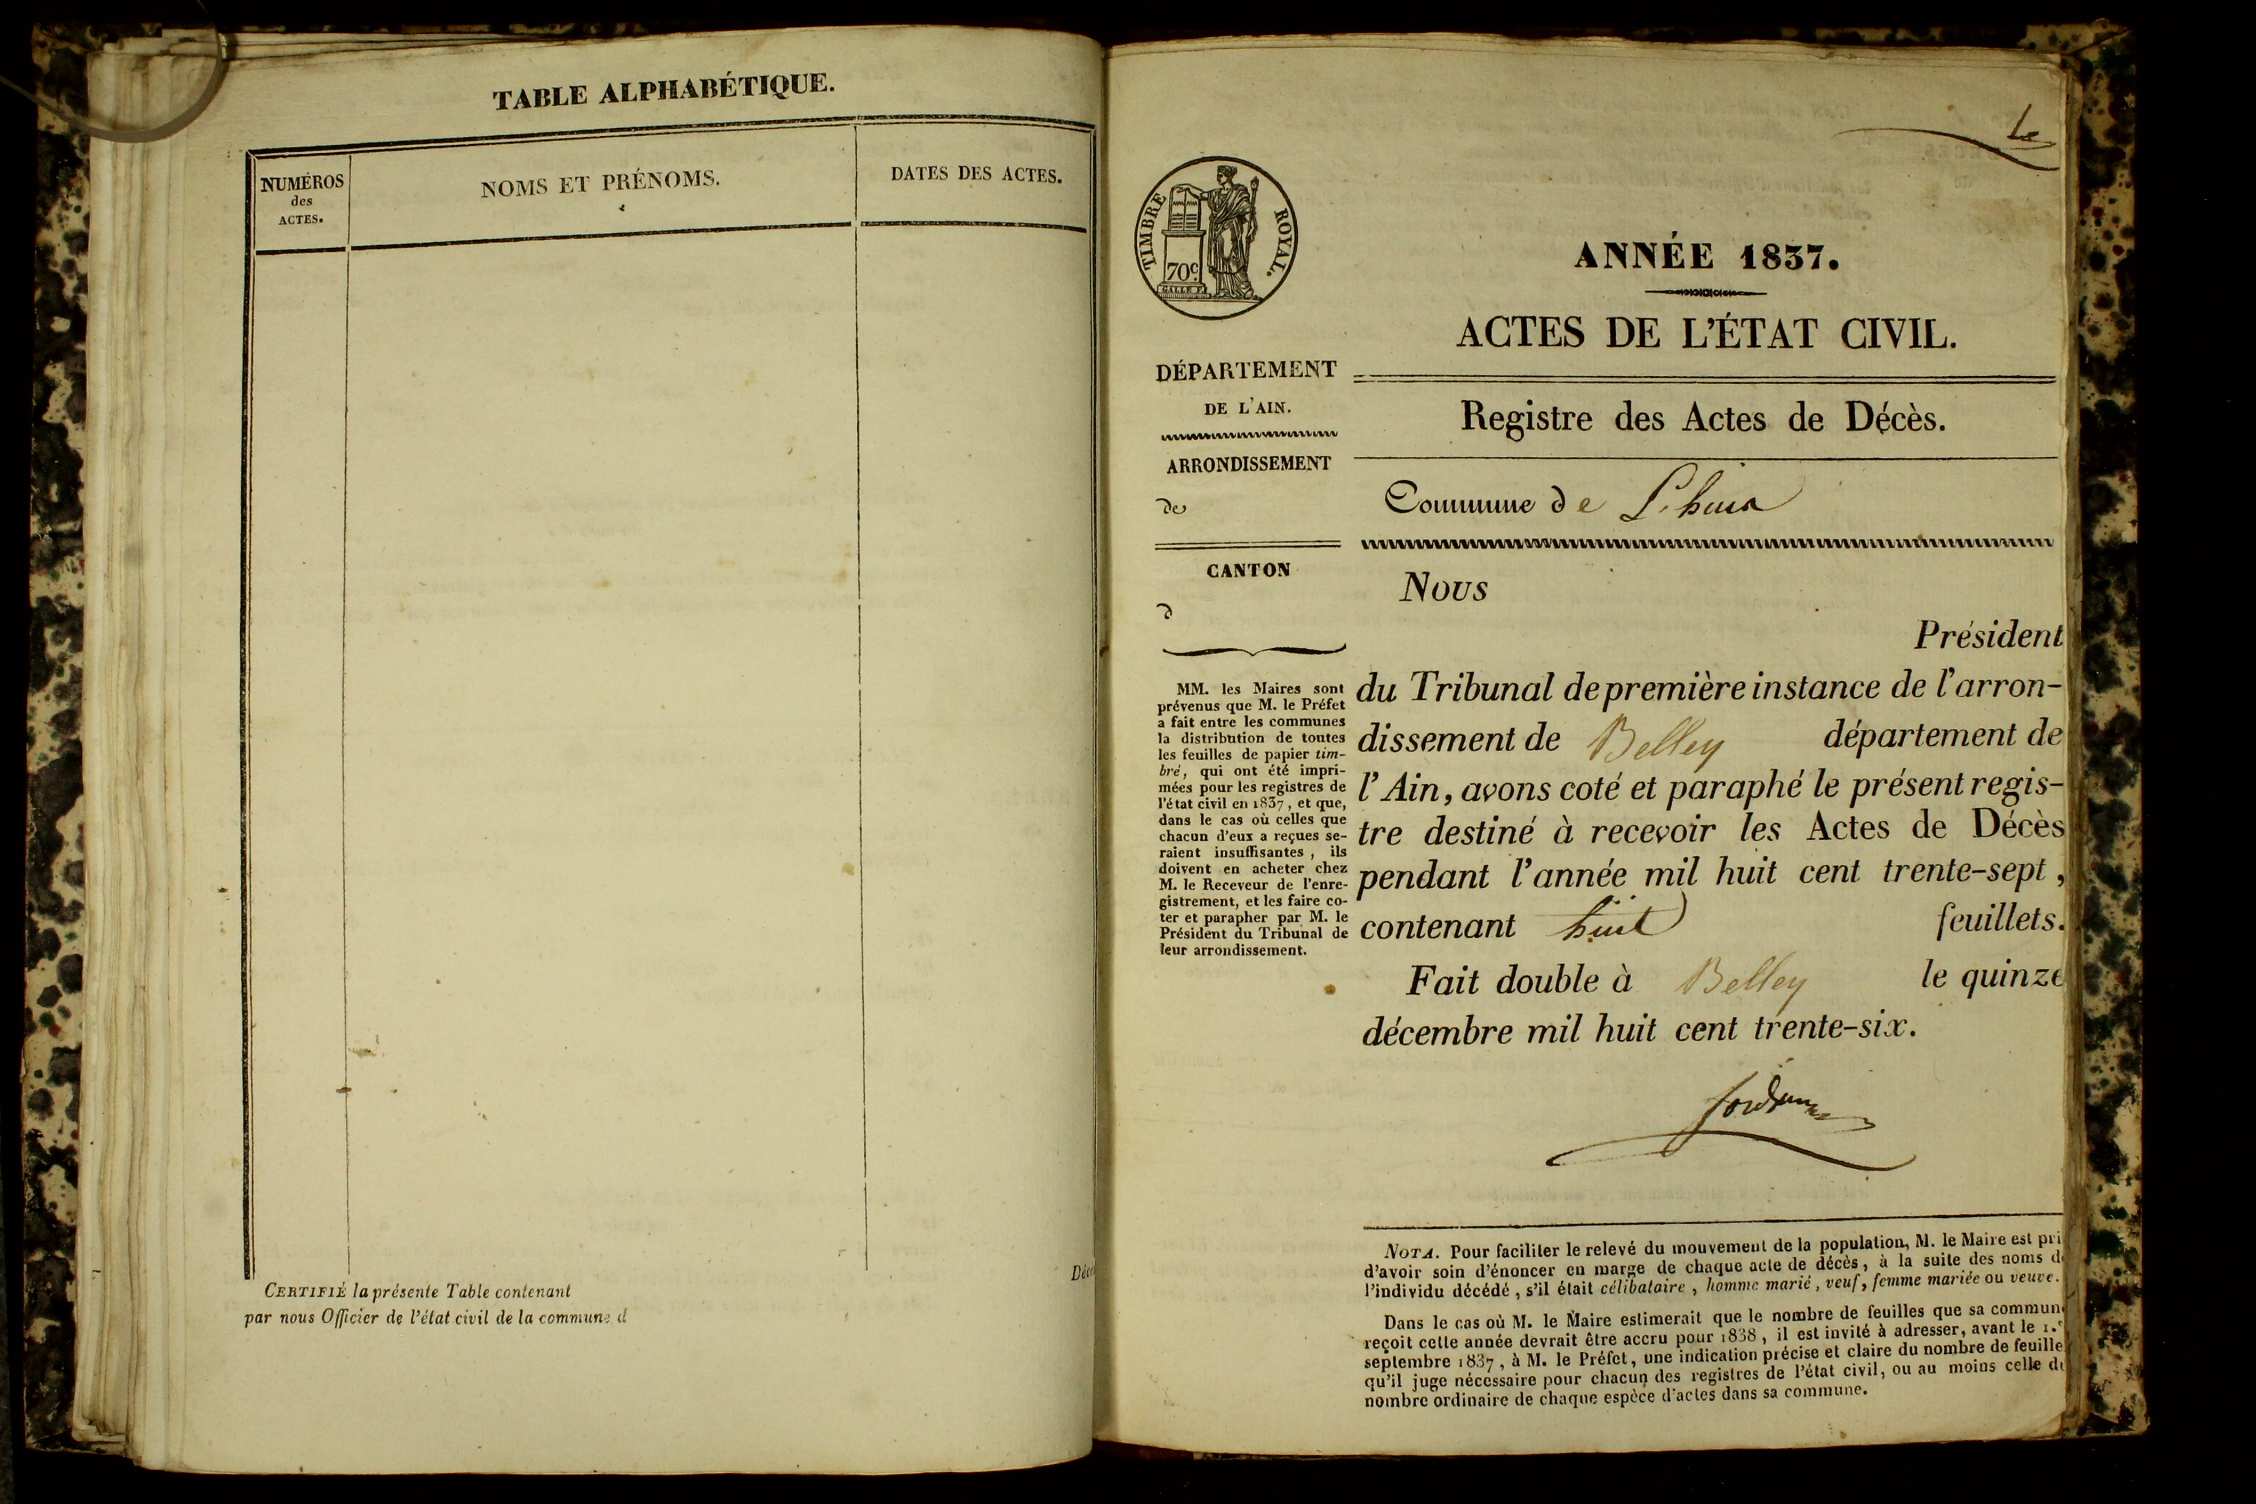 TABLE ALPHABÉTIQUE.
NUMÉROS
des
ACTES.
NOMS ET PRÉNOMS.
DATES DES ACTES.
CERTIFIÉ la présente Table contenant
par nous Officier de l'état civil de la commune d
TIMBRE ROYAL.
70c
ANNÉE 1837.
ACTES DE L'ÉTAT CIVIL.
Registre des Actes de Décès.
DÉPARTEMENT
DE L'AIN.
ARRONDISSEMENT
de
CANTON
d
MM. les Maires sont
prévenus que M. le Préfet
a fait entre les communes
la distribution de toutes
les feuilles de papier tim-
bré, qui ont été impri-
mées pour les registres de
l'état civil en 1837, et que,
dans le cas où celles que
chacun d'eux a reçues se-
raient insuffisantes, ils
doivent en acheter chez
M. le Receveur de l'enre-
gistrement, et les faire co-
ter et parapher par M. le
Président du Tribunal de
leur arrondissement.
Commune de Lhuis
Nous
Président
du Tribunal de première instance de l'arron-
dissement de Belley département de
l'Ain, avons coté et paraphé le présent regis-
tre destiné à recevoir les Actes de Décès
pendant l'année mil huit cent trente-sept,
contenant huit feuillets.
Fait double à Belley le quinze
décembre mil huit cent trente-six.
NOTA. Pour faciliter le relevé du mouvement de la population, M. le Maire est pri
d'avoir soin d'énoncer en marge de chaque acte de décès, à la suite des noms d
l'individu décédé, s'il était célibataire, homme marié, veuf, femme mariée ou veuve.
Dans le cas où M. le Maire estimerait que le nombre de feuilles que sa commun
reçoit cette année devrait être accru pour 1838, il est invité à adresser, avant le 1.
septembre 1837, à M. le Préfet, une indication précise et claire du nombre de feuille
qu'il juge nécessaire pour chacun des registres de l'état civil, ou au moins celle du
nombre ordinaire de chaque espèce d'actes dans sa commune.